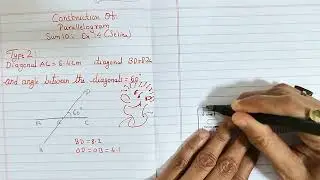 Construction Of
Parallelogram
Type 2:
Diagonal AC = 6.4cm diagonal BD=8.2
and angle between the diagonals = 60°
D
60°
A
C
B
BD = 8.2
OD = OB = 4.1